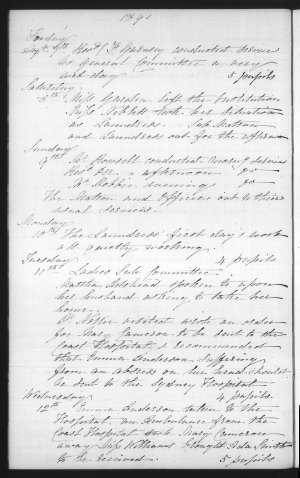 1891
Friday
Rev'd conducted service
no General Committee a very
wet day 5 pupils
Saturday
8th Miss Gordon left the Institution
Miss Niblett took her situation
as Laundress. Sub Matron
and Laundress out for the afternoon
Sunday
9th Mr Rowsell conducted morng service
Revd afternoon do
Mr Dobbie evening do
The Matron and Officers out to their
usual services.
Monday
10th The Laundress' first day's work
all quietly working.
Tuesday 4 pupils
11th Ladies Sub Committee.
Martha spoken to upon
her husband asking to take her
home.
Dr Foster visited wrote an order
for Mary Cameron to be sent to the
Coast Hospital & recommended
that Emma Anderson suffering
from an abscess on her head should
be sent to the Sydney Hospital
Wednesday 4 pupils.
12th Emma Anderson taken to the
Hospital, an Ambulance from the
Coast Hospital took Mary Cameron
away Miss Williams brought Ada Smith
to be received. 5 pupils